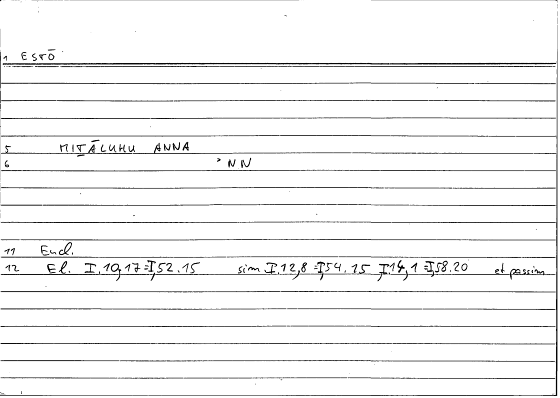 1 ESTŌ
5 MIṮĀLUHU ANNA
6 > NN
11 Eucl.
12 El. I.10,17=I,52.15 sim I.12,8=I,54.15 I.14,1=I,58.20 et passim